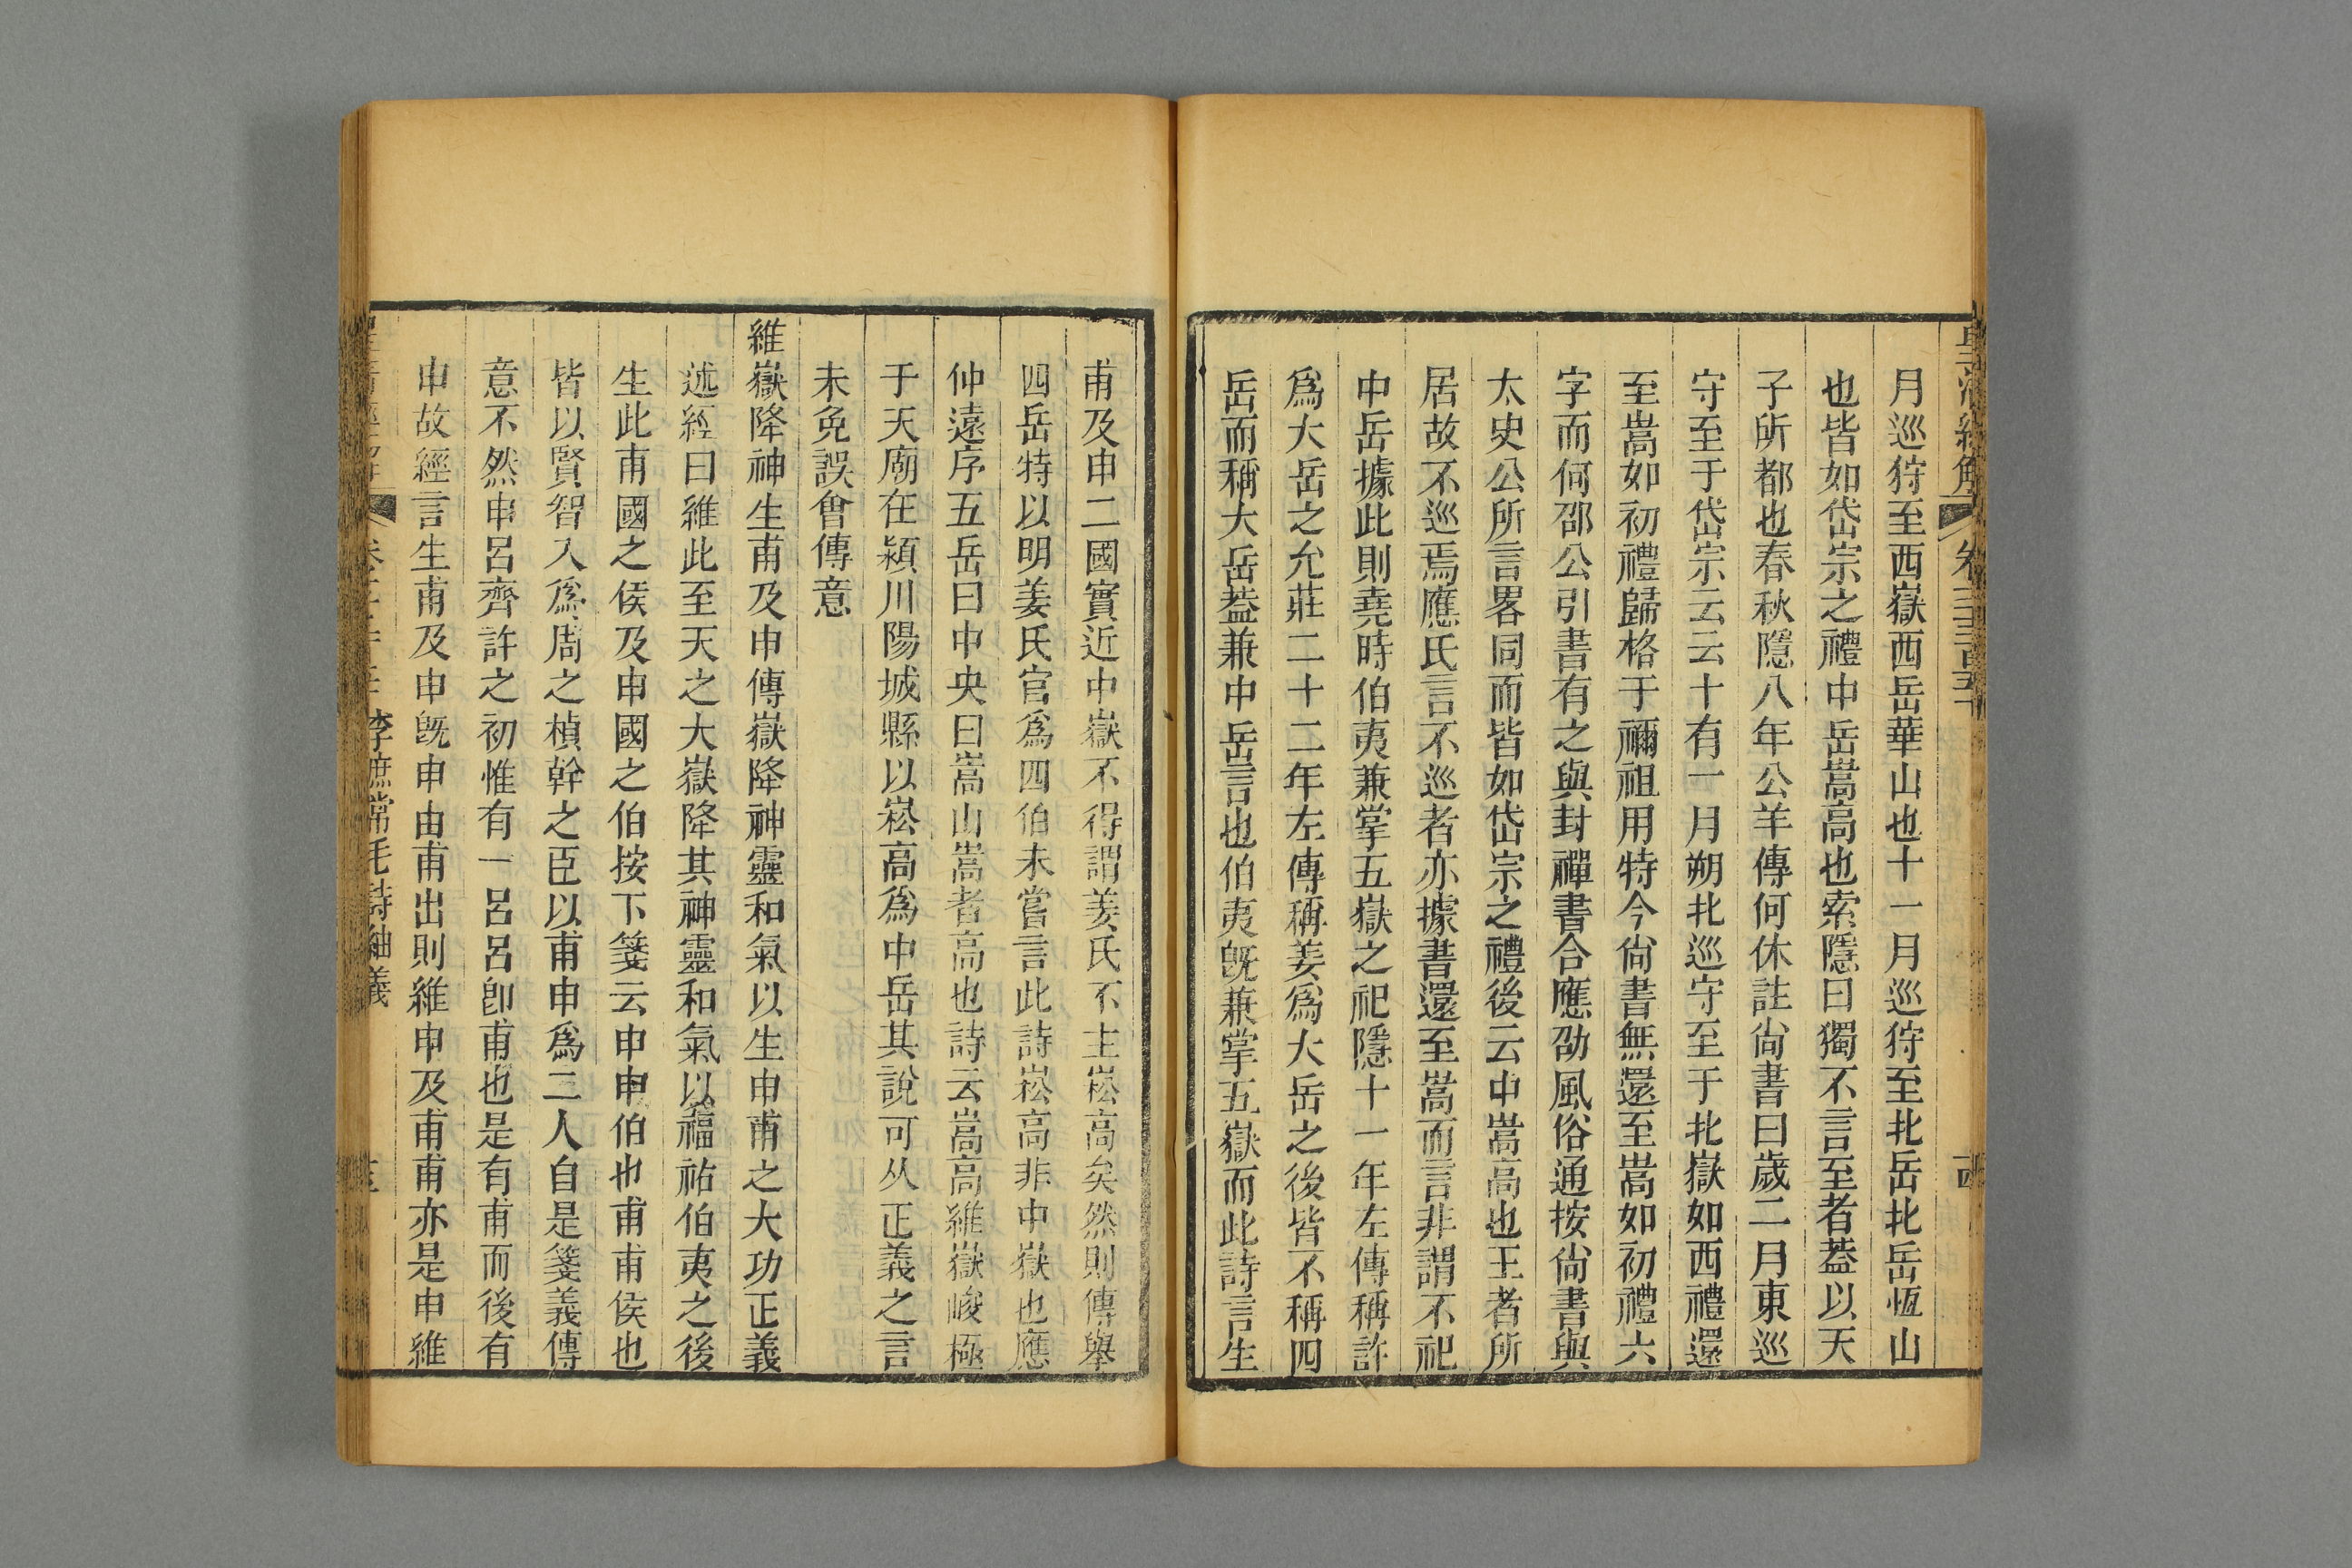 月巡狩至西嶽西岳華山也十一月巡狩至北岳北岳恆山
也皆如岱宗之禮中岳嵩高也索隱曰獨不言至者葢以天
子所都也春秋隱八年公羊傳何休註尙書曰歲二月東巡
守至于岱宗云云十有一月朔北巡守至于北嶽如西禮還
至嵩如初禮歸格于禰祖用特今尙書無還至嵩如初禮六
字而何邵公引書有之與封禪書合應劭風俗通按尙書與
太史公所言畧同而皆如岱宗之禮後云中嵩高也王者所
居故不巡焉應氏言不巡者亦據書還至嵩而言非謂不祀
中岳據此則堯時伯夷兼掌五嶽之祀隱十一年左傳稱許
爲大岳之允莊二十二年左傳稱姜爲大岳之後皆不稱四
岳而稱大岳葢兼中岳言也伯夷旣兼掌五嶽而此詩言生
甫及申二國實近中嶽不得謂姜氏不主崧高矣然則傳舉
四岳特以明姜氏官爲四伯未嘗言此詩崧高非中嶽也應
仲遠序五岳曰中央曰嵩山嵩者高也詩云嵩高維嶽峻極
于天廟在潁川陽城縣以崧高爲中岳其說可从正義之言
未免誤會傳意
維嶽降神生甫及申傳嶽降神靈和氣以生申甫之大功正義
述經曰維此至天之大嶽降其神靈和氣以福祐伯夷之後
生此甫國之侯及申國之伯按下箋云申申伯也甫甫侯也
皆以賢智入爲周之楨幹之臣以甫申爲二人自是箋義傳
意不然申呂齊許之初惟有一呂呂卽甫也是有甫而後有
申故經言生甫及申旣申由甫出則維申及甫甫亦是申維
李黼常毛詩紬義